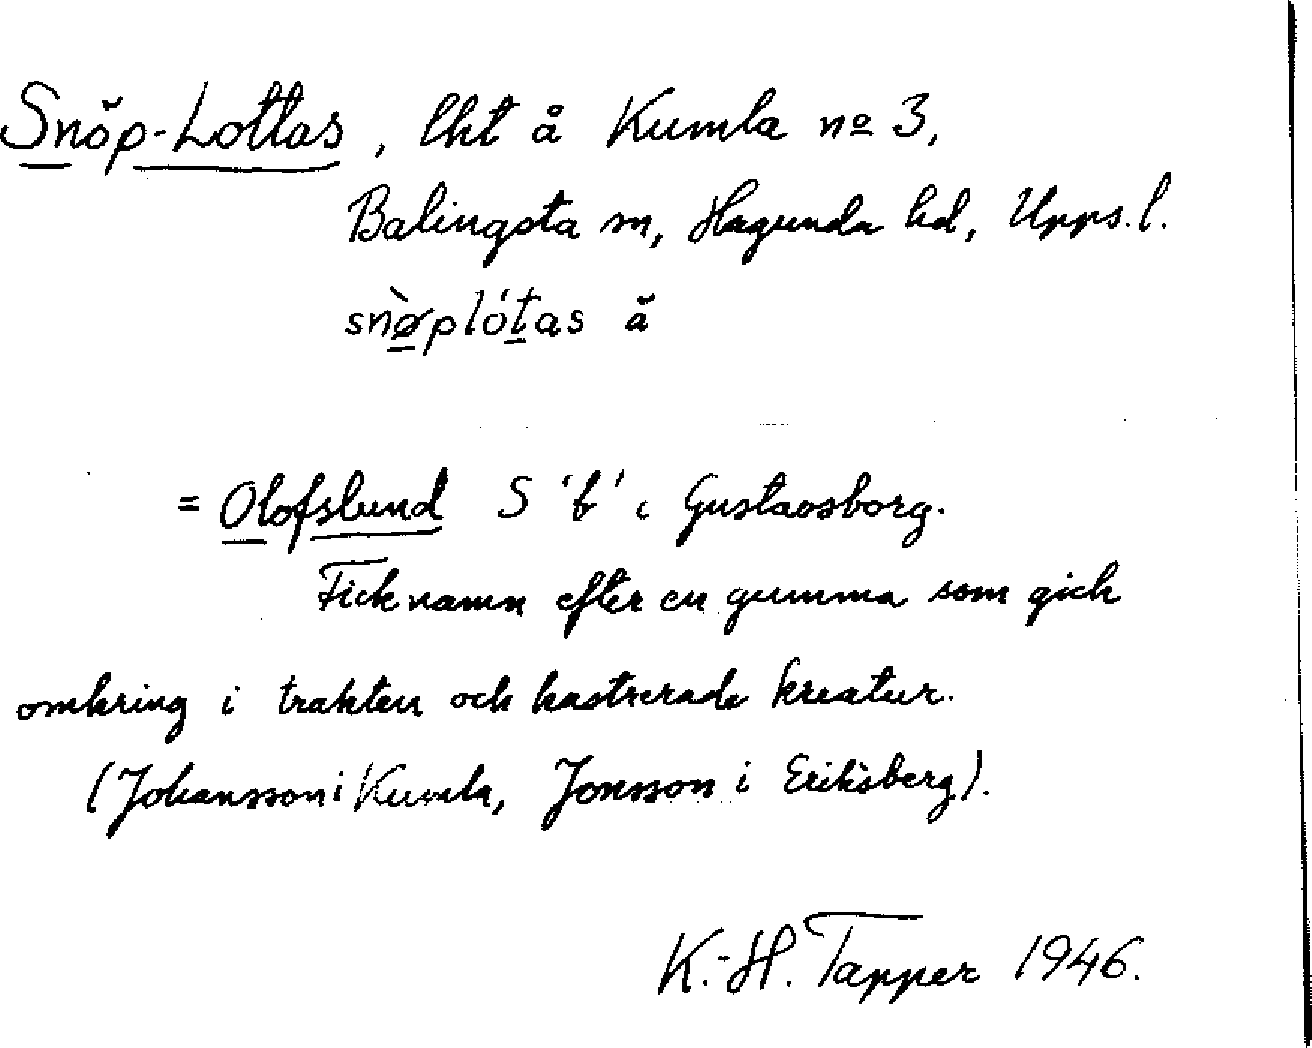 Snöp-Lottas, lht å Kumla nº 3,
Balingsta sn, Hagunda hd, Upps. l.
snø̀plótas å̆
= Olofslund S 'b' i Gustavsborg.
Fick namn efter en gumma som gick
omkring i trakten och kastrerade kreatur.
(Johansson i Kumla, Jonsson i Eriksberg).
K.-H. Tapper 1946.